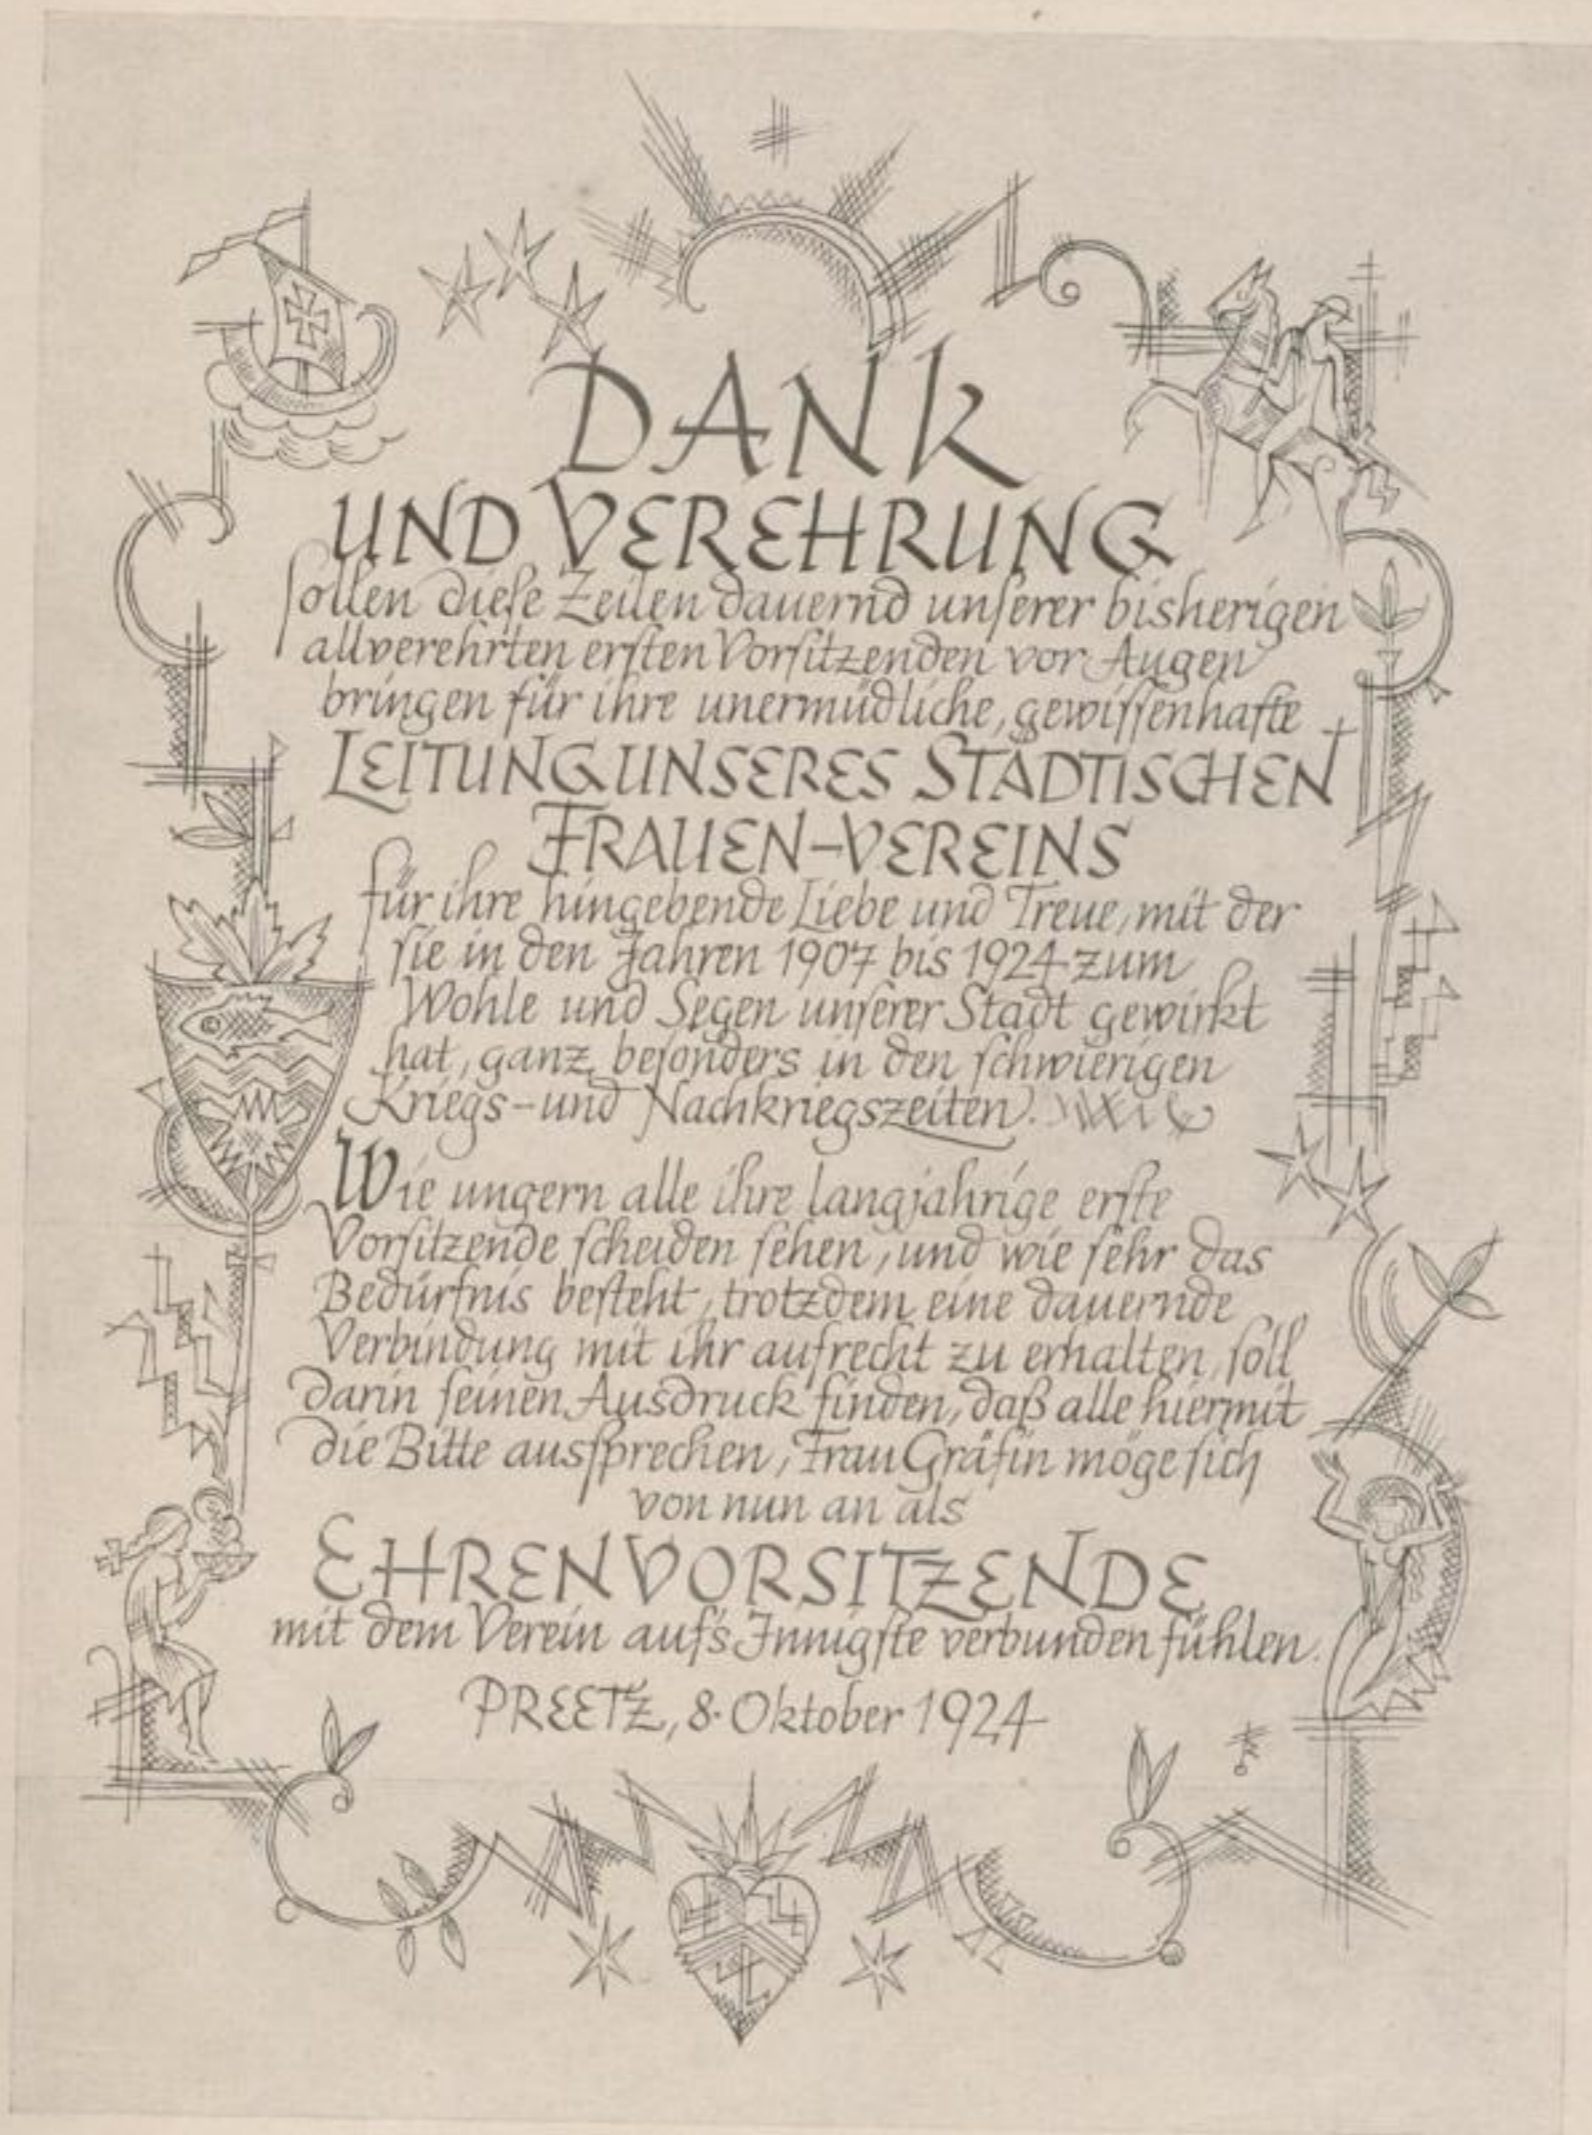 DANK
UND VEREHRUNG
sollen diese Zeilen dauernd unserer bisherigen
allverehrten ersten Vorsitzenden vor Augen
bringen für ihre unermüdliche, gewissenhafte
LEITUNG UNSERES STÄDTISCHEN
FRAUEN-VEREINS
für ihre hingebende Liebe und Treue, mit der
sie in den Jahren 1907 bis 1924 zum
Wohle und Segen unserer Stadt gewirkt
hat, ganz besonders in den schwierigen
Kriegs- und Nachkriegszeiten.
Wie ungern alle ihre langjährige erste
Vorsitzende scheiden sehen, und wie sehr das
Bedürfnis besteht, trotzdem eine dauernde
Verbindung mit ihr aufrecht zu erhalten, soll
darin seinen Ausdruck finden, daß alle hiermit
die Bitte aussprechen, Frau Gräfin möge sich
von nun an als
EHRENVORSITZENDE
mit dem Verein auf's Innigste verbunden fühlen.
PREETZ, 8. Oktober 1924